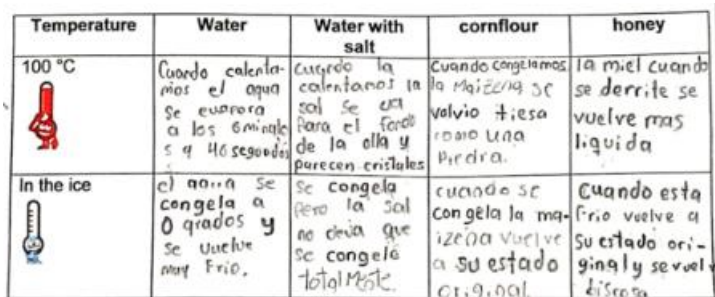 Temperature Water Water with salt cornflour honey
100 °C
Cuando calenta-
mos el agua
se evapora
a los 6 minuto
s y 46 segundos
cuando la
calentamos la
sal se va
Para el fondo
de la olla y
parecen cristales
Cuando congelamos
la Maizena se
volvio tiesa
como una
Piedra.
la miel cuando
se derrite se
vuelve mas
liquida
In the ice
el agua se
congela a
0 grados y
se vuelve
muy Frio.
se congela
Pero la sal
no deja que
se congele
total Mente.
cuando se
congela la ma-
izena vuelve
a su estado
original
Cuando esta
Frio vuelve a
su estado ori-
ginal y se vuel